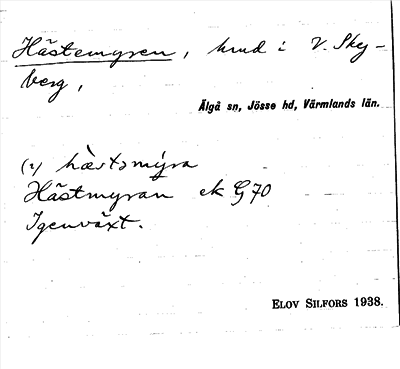 Hästemyren, hmd i V. Sky-
berg,
Älgå sn, Jösse hd, Värmlands län.
(i) hæ̀stəmýra
Hästmyran ek G70
Igenväxt.
ELOV SILFORS 1938.